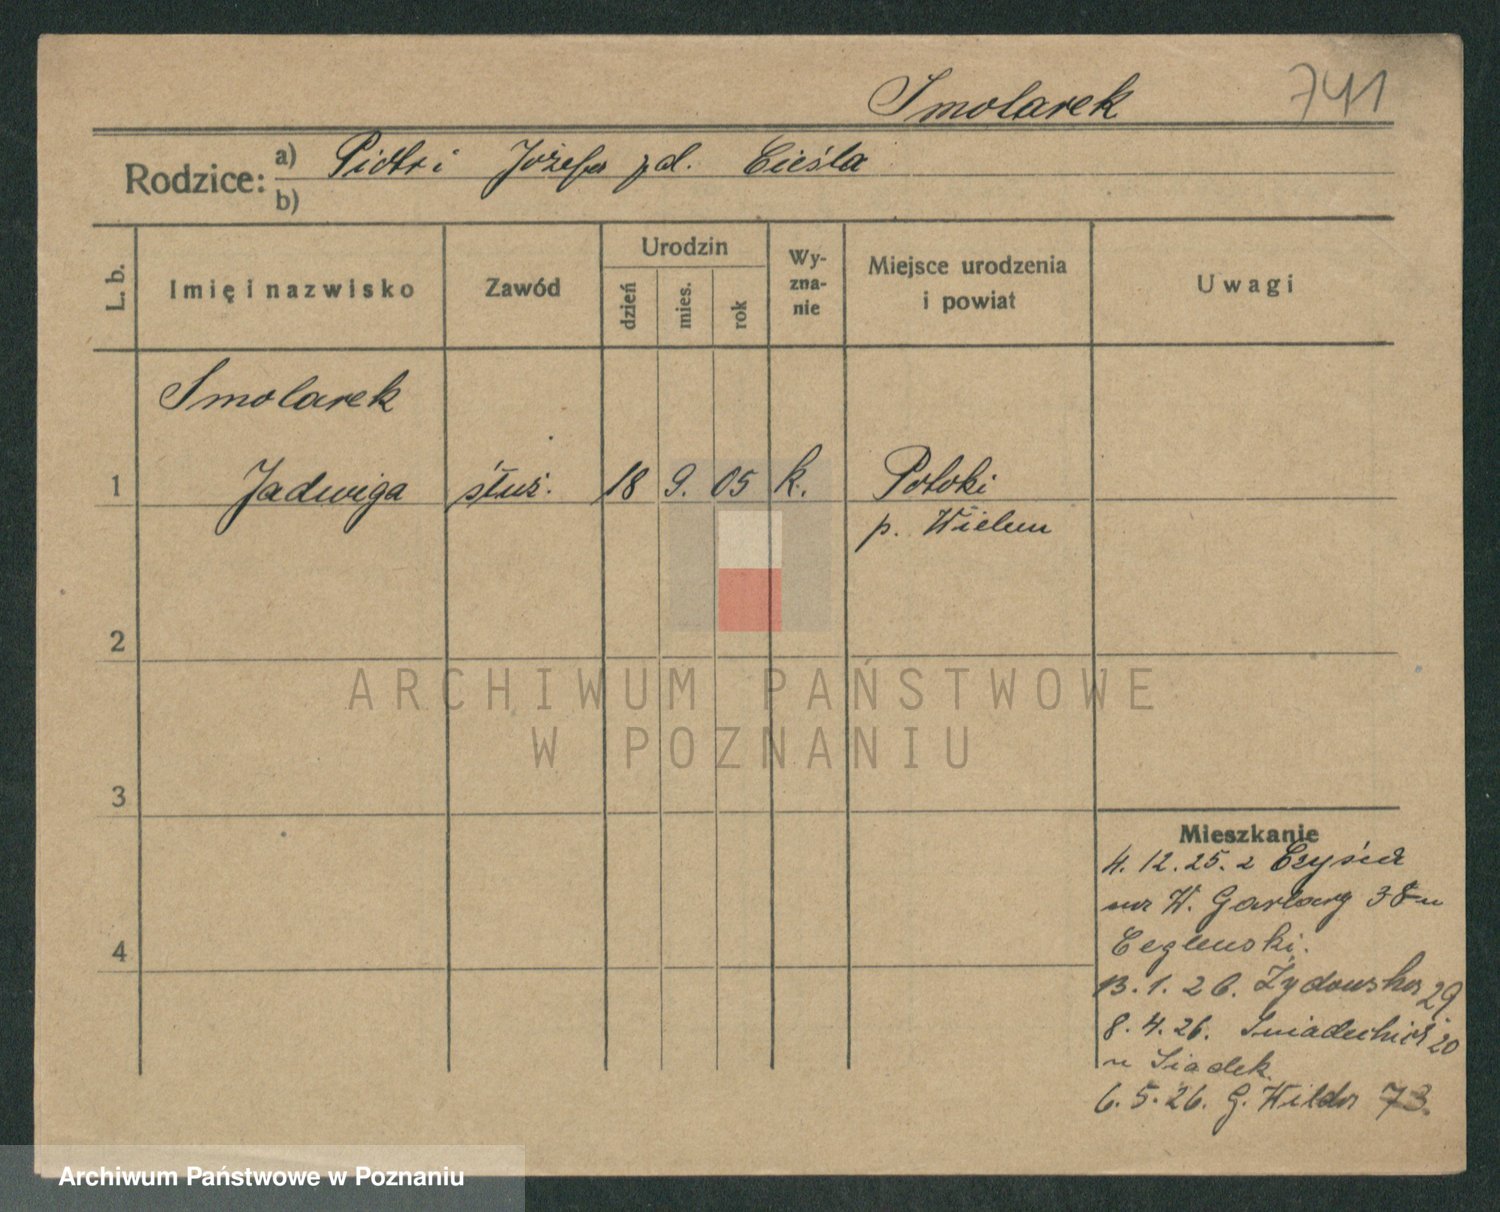 Smolarek 741
Rodzice: a) Piotr i Józefa zd. Cieśla
b)
L. b. Imię i nazwisko Zawód Urodzin dzień mies. rok Wyznanie Miejsce urodzenia i powiat Uwagi
Smolarek
1 Jadwiga służ. 18 9. 05 k. Potoki
p. Wielun
2
ARCHIWUM PAŃSTWOWE
W POZNANIU
3
Mieszkanie
4. 12. 25. z
W. Garbary 38 u
4
13. 1. 26. Żydowska 29
8. 4. 26. Śniadeckich 20
u Siadek
6. 5. 26. G. Wilda 73.
Archiwum Państwowe w Poznaniu